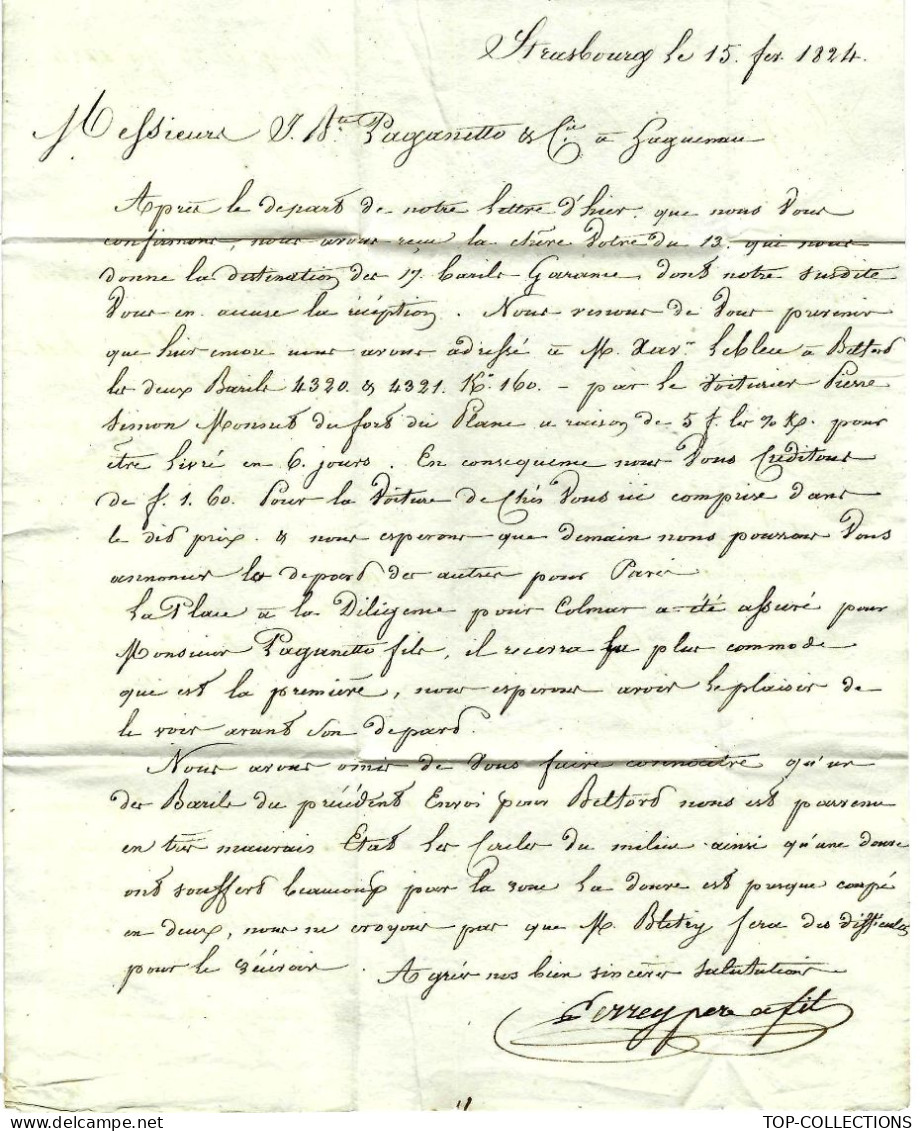 Strasbourg le 15. fer. 1824.
Messieurs J. Bte. Paganetto & Cie. à Haguenau
Après le depart de notre Lettre d'hier, que nous Vous
confirmons, nous avons reçu la chère Votre du 13. qui nous
donne la destination des 17. barils Garance, dont notre susdite
Vous en accuse la réception. Nous venons de Vous prevenir
que hier encore nous avons adressé à M. Xavr. Lebleu à Belford
les deux Barils 4320. & 4321. Ko. 160. – par le Voiturier Pierre
Simon Monnet du fort du Plane a raison de 5 f. les % K. pour
être livré en 6. jours. En consequence nous Vous Creditons
de f. 1. 60. Pour la Voiture de Chés Vous ici comprise dans
le dit prix. & nous esperons que demain nous pourrons Vous
annoncer le depard des autres pour Paris
La Place à la Diligence pour Colmar a été assuré pour
Monsieur Paganetto fils, il recevra la plus commode
qui est la première, nous esperons avoir le plaisir de
le voir avant son depard.
Nous avons omis de Vous faire connaitre qu'un
des Barils du précédent Envoi pour Belford nous est parvenu
en très mauvais Etat les Cercles du milieu ainsi qu'une douve
ont souffert beaucoup par la roue la douve est presque coupé
en deux, nous ne croyons pas que M. Bletry fera des difficultés
pour le recevoir. Agrér nos bien sincères salutations
Ferrey pere & fils
TOP-COLLECTIONS